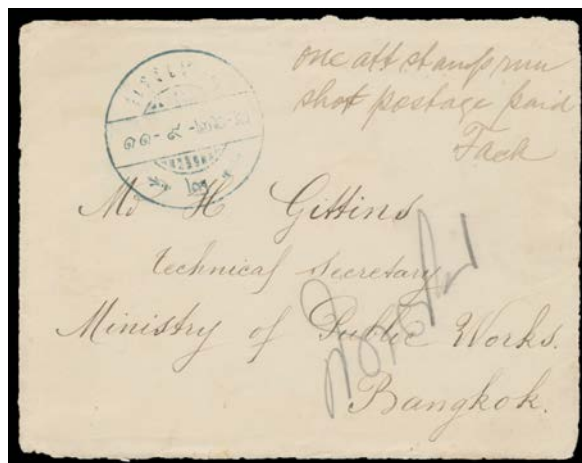 one att stamps run
shot postage paid
Fack
๑๑-๙
Mr H Gittins
technical secretary
Ministry of Public Works.
Bangkok.